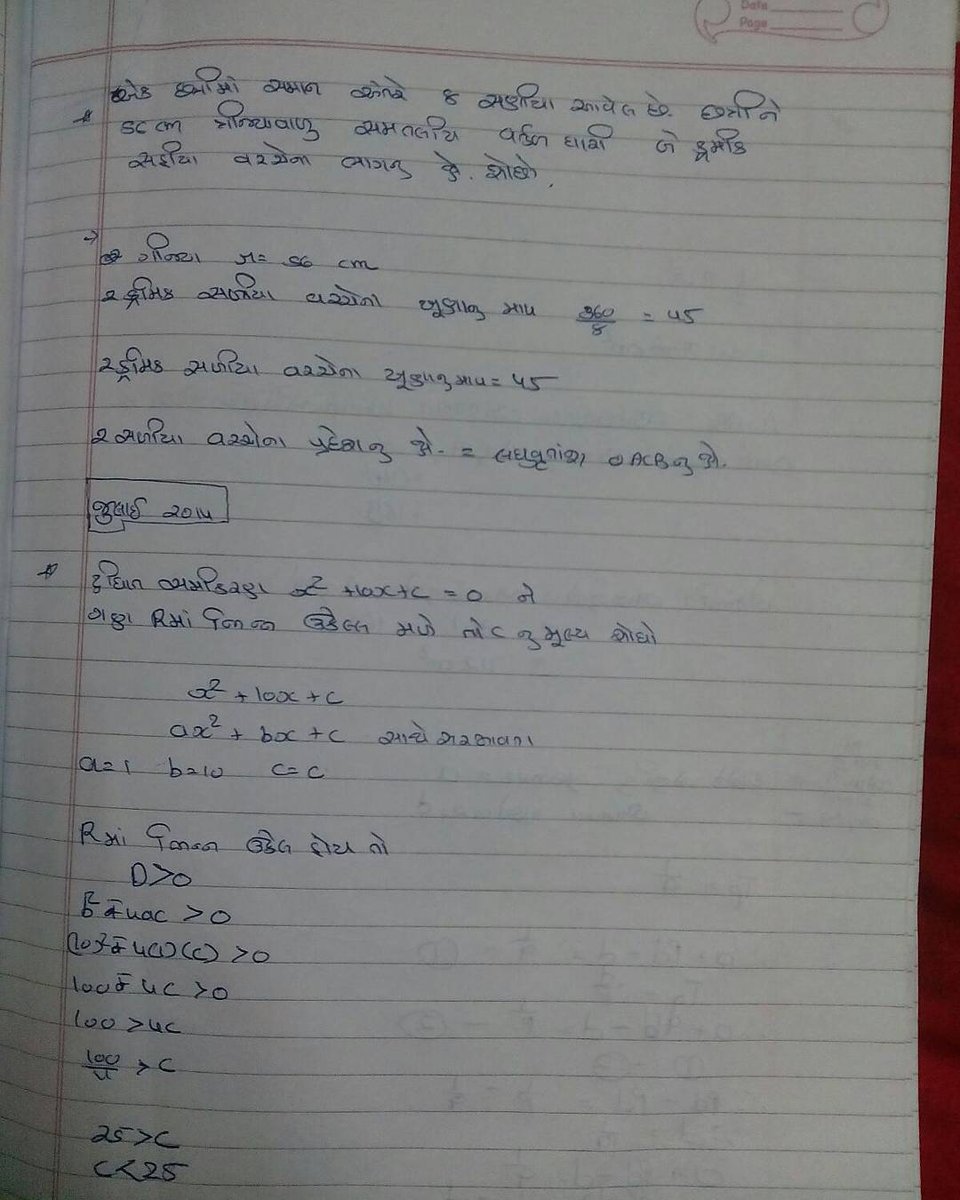 Date
Page
એક છત્રીમાં સમાન અંતરે 8 સળીયા આવેલ છે. છત્રીને
* 56 cm ત્રિજ્યાવાળુ સમતલીય વર્તુળ ધારી બે ક્રમીક
સળીયા વચ્ચેના ભાગનુ ક્ષે. શોધો.
→ ત્રિજ્યા r = 56 cm
2 ક્રમિક સળીયા વચ્ચેના ખૂણાનુ માપ 360/8 = 45
2 ક્રમિક સળીયા વચ્ચેના ખૂણાનુ માપ = 45
2 સળીયા વચ્ચેના પ્રદેશનુ ક્ષે. = લઘુવૃતાંશ OACB નુ ક્ષે.
જુલાઈ 2014
* દ્વિઘાત સમીકરણ x² + 10x + c = 0 ને
ગણ R માં ભિન્ન ઉકેલ મળે તો C નુ મૂલ્ય શોધો
x² + 10x + c
ax² + bx + c સાથે સરખાવતા
a = 1 b = 10 c = c
R માં ભિન્ન ઉકેલ હોય તો
D > 0
b² - 4ac > 0
(10)² - 4(1)(c) > 0
100 - 4c > 0
100 > 4c
100/4 > c
25 > c
c < 25